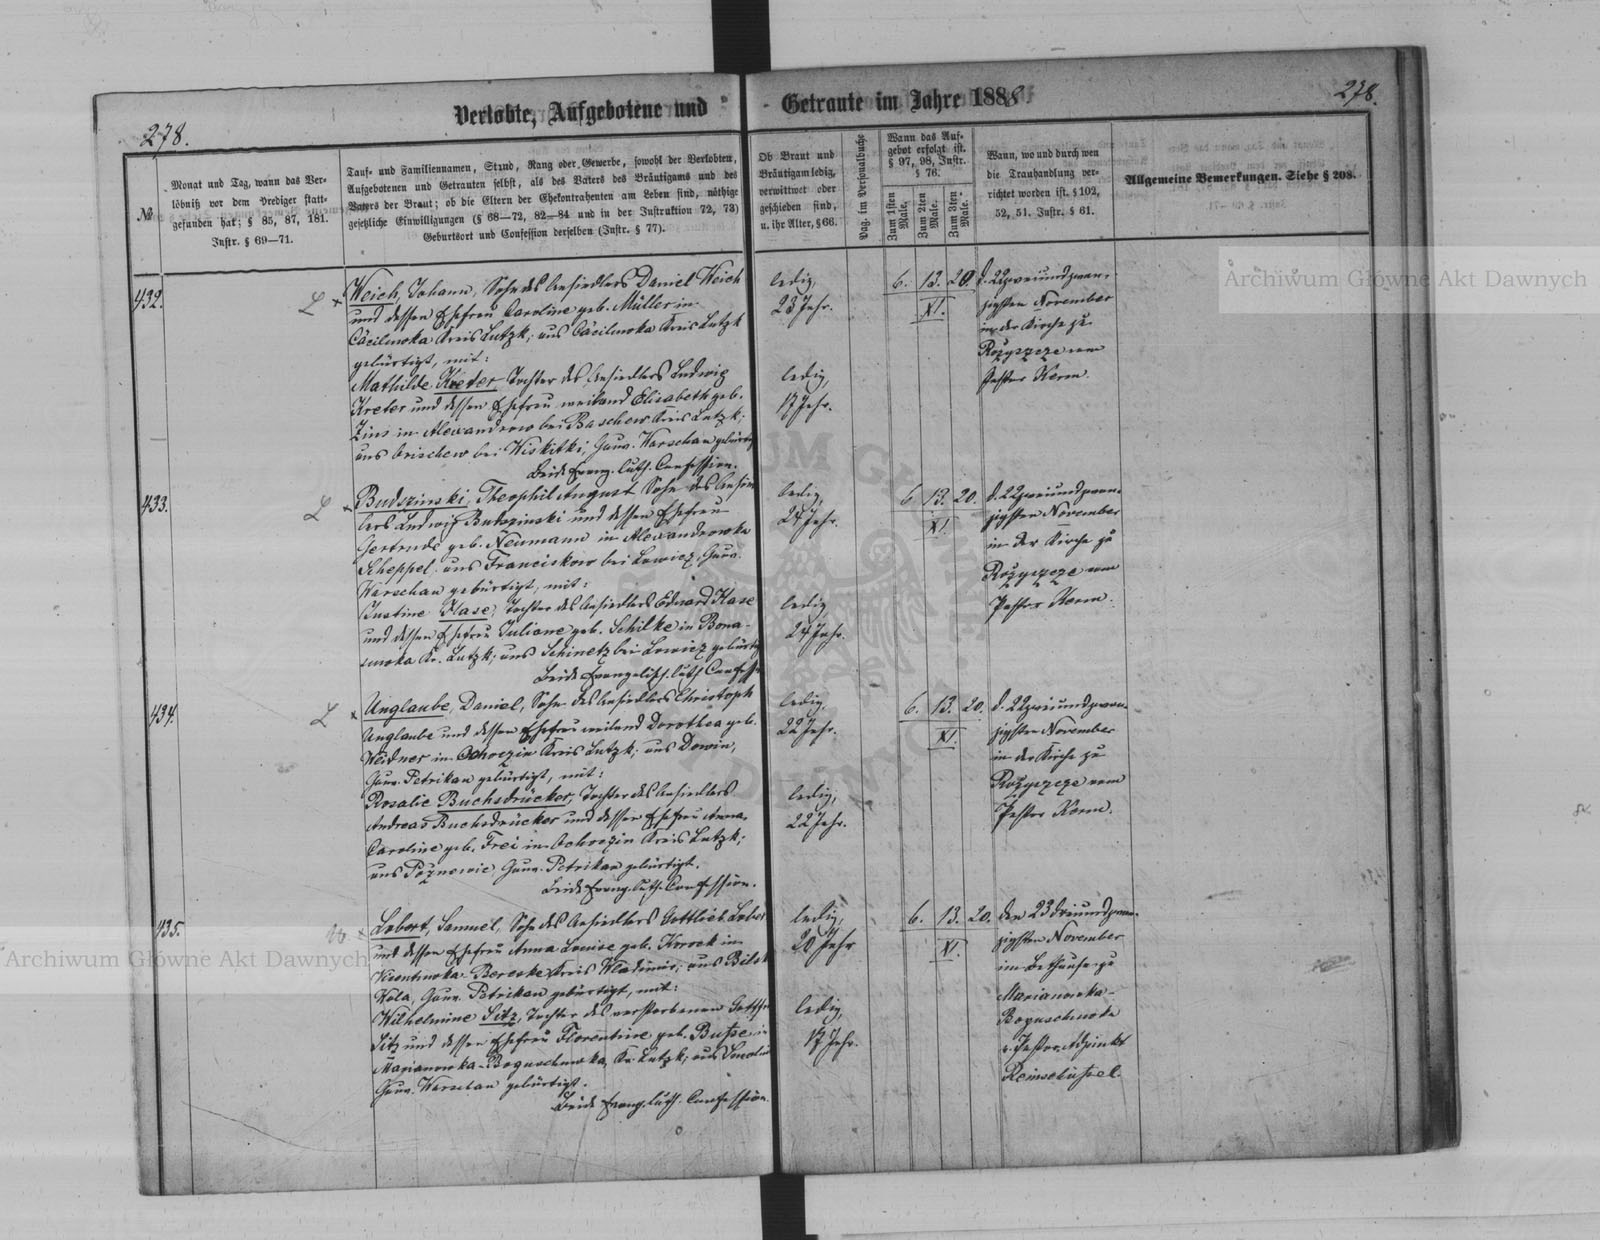 Verlobte, Aufgebotene und Getraute im Jahre 1888.
278.
278.
№
Monat und Tag, wann das Ver-
löbniß vor dem Prediger statt-
gefunden hat; § 85, 87, 181.
Instr. § 69—71.
Tauf- und Familiennamen, Stand, Rang oder Gewerbe, sowohl der Verlobten,
Aufgebotenen und Getrauten selbst, als des Vaters des Bräutigams und des
Vaters der Braut; ob die Eltern der Ehekontrahenten am Leben sind, nöthige
gesetzliche Einwilligungen (§ 68—72, 82—84 und in der Instruktion 72, 73)
Geburtsort und Confession derselben (Instr. § 77).
Ob Braut und
Bräutigam ledig,
verwittwet oder
geschieden sind,
u. ihr Alter, § 66.
Pag. im Personalbuche
Wann das Auf-
gebot erfolgt ist.
§ 97, 98, Instr.
§ 76.
Zum 1sten Male.
Zum 2ten Male.
Zum 3ten Male.
Wann, wo und durch wen
die Trauhandlung ver-
richtet worden ist. § 102,
52, 51. Instr. § 61.
Allgemeine Bemerkungen. Siehe § 208.
432.
L ×
Weich, Johann, Sohn des Ansiedlers Daniel Weich
und dessen Ehefrau Caroline geb. Müller in
Cäcilinoka Kreis Lutzk; aus Cäcilinoka Kreis Lutzk
gebürtigt, mit:
Mathilde Kreter, Tochter des Ansiedlers Ludwig
Kreter und dessen Ehefrau weiland Elisabeth geb.
Zins in Alexandrow bei Baschew Kreis Lutzk;
aus bei Wiskitki, Guv. Warschau gebürtigt
Beide Evang. luth. Confession.
ledig,
23 Jahr.
ledig,
17 Jahr.
6. 13. 20.
XI.
d. 22 zweiundzwan-
zigsten November
in der Kirche zu
Rożyszcze vom
Pastor Kerm.
433.
L ×
Budszinski, Theophil August Sohn des Ansied-
lers Ludwig Budszinski und dessen Ehefrau
Gertrude geb. Neumann in Alexandrowka
Scheppel. aus Franciskow bei Lowicz, Guv.
Warschau gebürtigt, mit:
Justine Klase, Tochter des Ansiedlers Eduard Klase
und dessen Ehefrau Juliane geb. Schilke in Bona-
Kr. Lutzk; aus Schinetz bei Lowicz gebürtig
Beide Evangelisch. luth. Confess.
ledig,
24 Jahr.
ledig
24 Jahr.
6 13. 20.
XI.
d. 22 zweiundzwan-
zigsten November
in der Kirche zu
Rożyszcze vom
Pastor Kerm.
434.
L ×
Unglaube, Daniel, Sohn des Ansiedlers Christoph
Unglaube und dessen Ehefrau weiland Dorothea geb.
Weidner in Ochoczin Kreis Lutzk; aus Dowin,
Guv. Petrikau gebürtigt, mit:
Rosalie Buchsdrücker, Tochter des Ansiedlers
Andreas Buchsdrücker und dessen Ehefrau Anna
Caroline geb. Frei in Ochoczin Kreis Lutzk;
aus Poznowie, Guv. Petrikau gebürtigt.
Beide Evang. luth. Confession.
ledig,
22 Jahr.
ledig,
22 Jahr.
6. 13. 20.
XI.
d. 22 zweiundzwan-
zigsten November
in der Kirche zu
Rożyszcze vom
Pastor Kerm.
435.
W. ×
Lobert, Samuel, Sohn des Ansiedlers Gottlieb Lobert
und dessen Ehefrau Anna Louise geb. Korock in
Bereske Kreis Wladimir; aus
Wola, Guv. Petrikau gebürtigt, mit:
Wilhelmine Sitz, Tochter des verstorbenen
Sitz und dessen Ehefrau Florentine geb. Busse in
Marianowka-Boguschowka, Kr. Lutzk; aus
Guv. Warschau gebürtigt.
Beide Evang. luth. Confession.
ledig,
20 Jahr
ledig,
17 Jahr.
6. 13. 20.
XI.
den 23 dreiundzwan-
zigsten November
im Bethause zu
Marianowka-
Boguschowka
v. Pastor Adjunkt
Archiwum Główne Akt Dawnych
Archiwum Główne Akt Dawnych